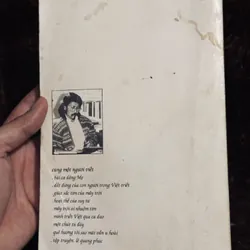 cùng một người viết
. bài ca dâng Mẹ
. đôi dòng của con người trong Việt triết
. giáo sắc tím của mây trời
. hoạt thể của suy tư
. mây trời có nhuốm tím
. minh triết Việt qua ca dao
. một chút tư duy
. quê hương tôi còn một nền u hoài
. tập truyện lê quang phúc